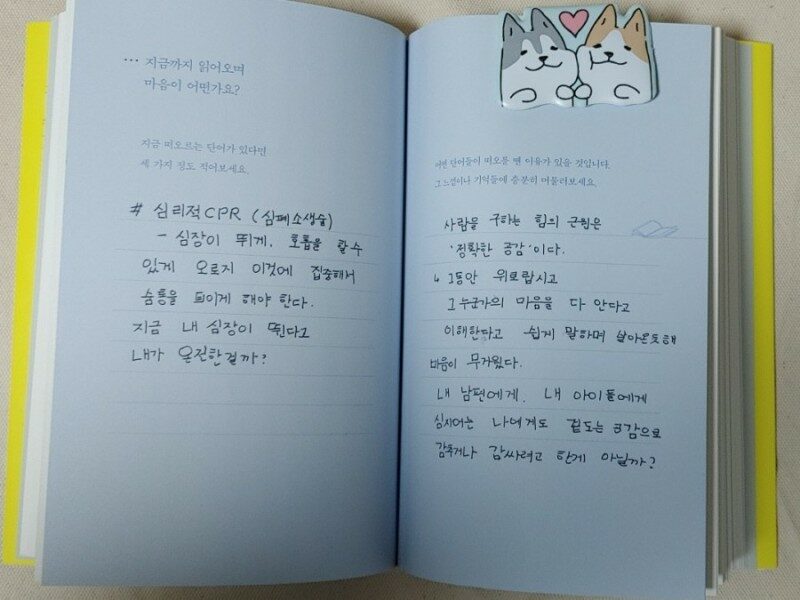 ··· 지금까지 읽어오며
마음이 어떤가요?
지금 떠오르는 단어가 있다면
세 가지 정도 적어보세요.
# 심리적CPR (심폐소생술)
- 심장이 뛰게, 호흡을 할 수
있게 오로지 이것에 집중해서
숨통을 트이게 해야 한다.
지금 내 심장이 뛴다고
내가 온전한걸까?
어떤 단어들이 떠오를 땐 이유가 있을 것입니다.
그 느낌이나 기억들에 충분히 머물러보세요.
사람을 구하는 힘의 근원은
'정확한 공감'이다.
↳ 그동안 위로랍시고
그 누군가의 마음을 다 안다고
이해한다고 쉽게 말하며 살아온듯해
마음이 무거웠다.
내 남편에게, 내 아이들에게
심지어는 나에게도 겉도는 공감으로
감추거나 감싸려고 한게 아닐까?